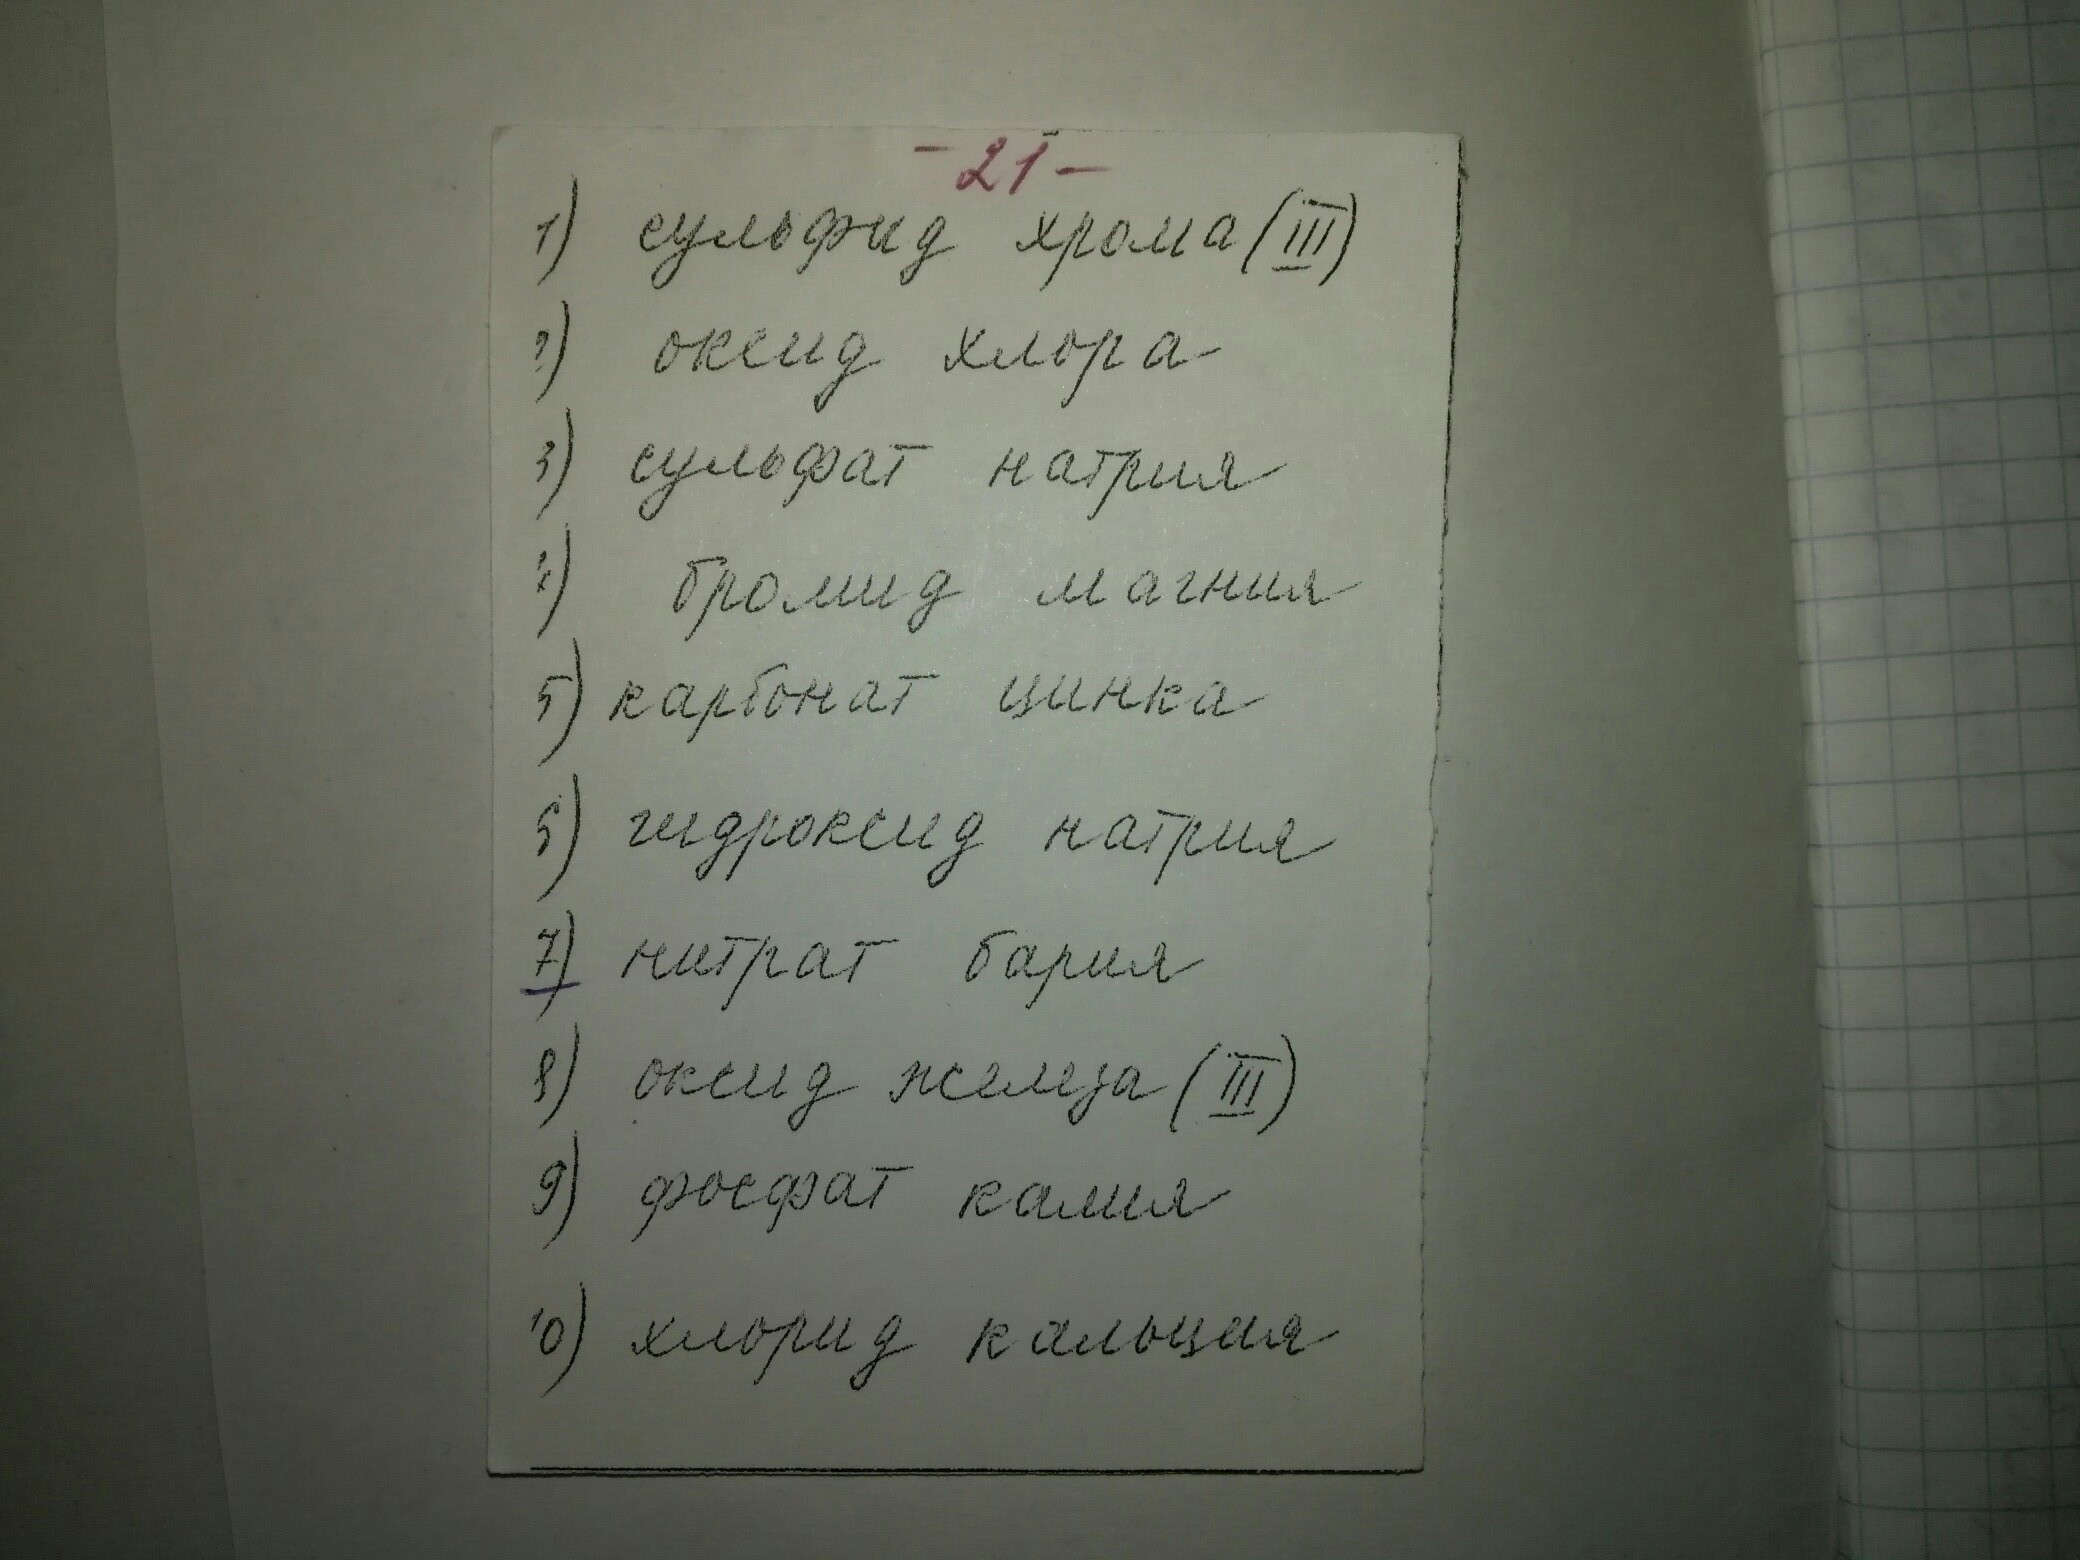 -21-
1) сульфид хрома (III)
2) оксид хлора
3) сульфат натрия
4) бромид магния
5) карбонат цинка
6) гидроксид натрия
7) нитрат бария
8) оксид железа (III)
9) фосфат калия
10) хлорид кальция